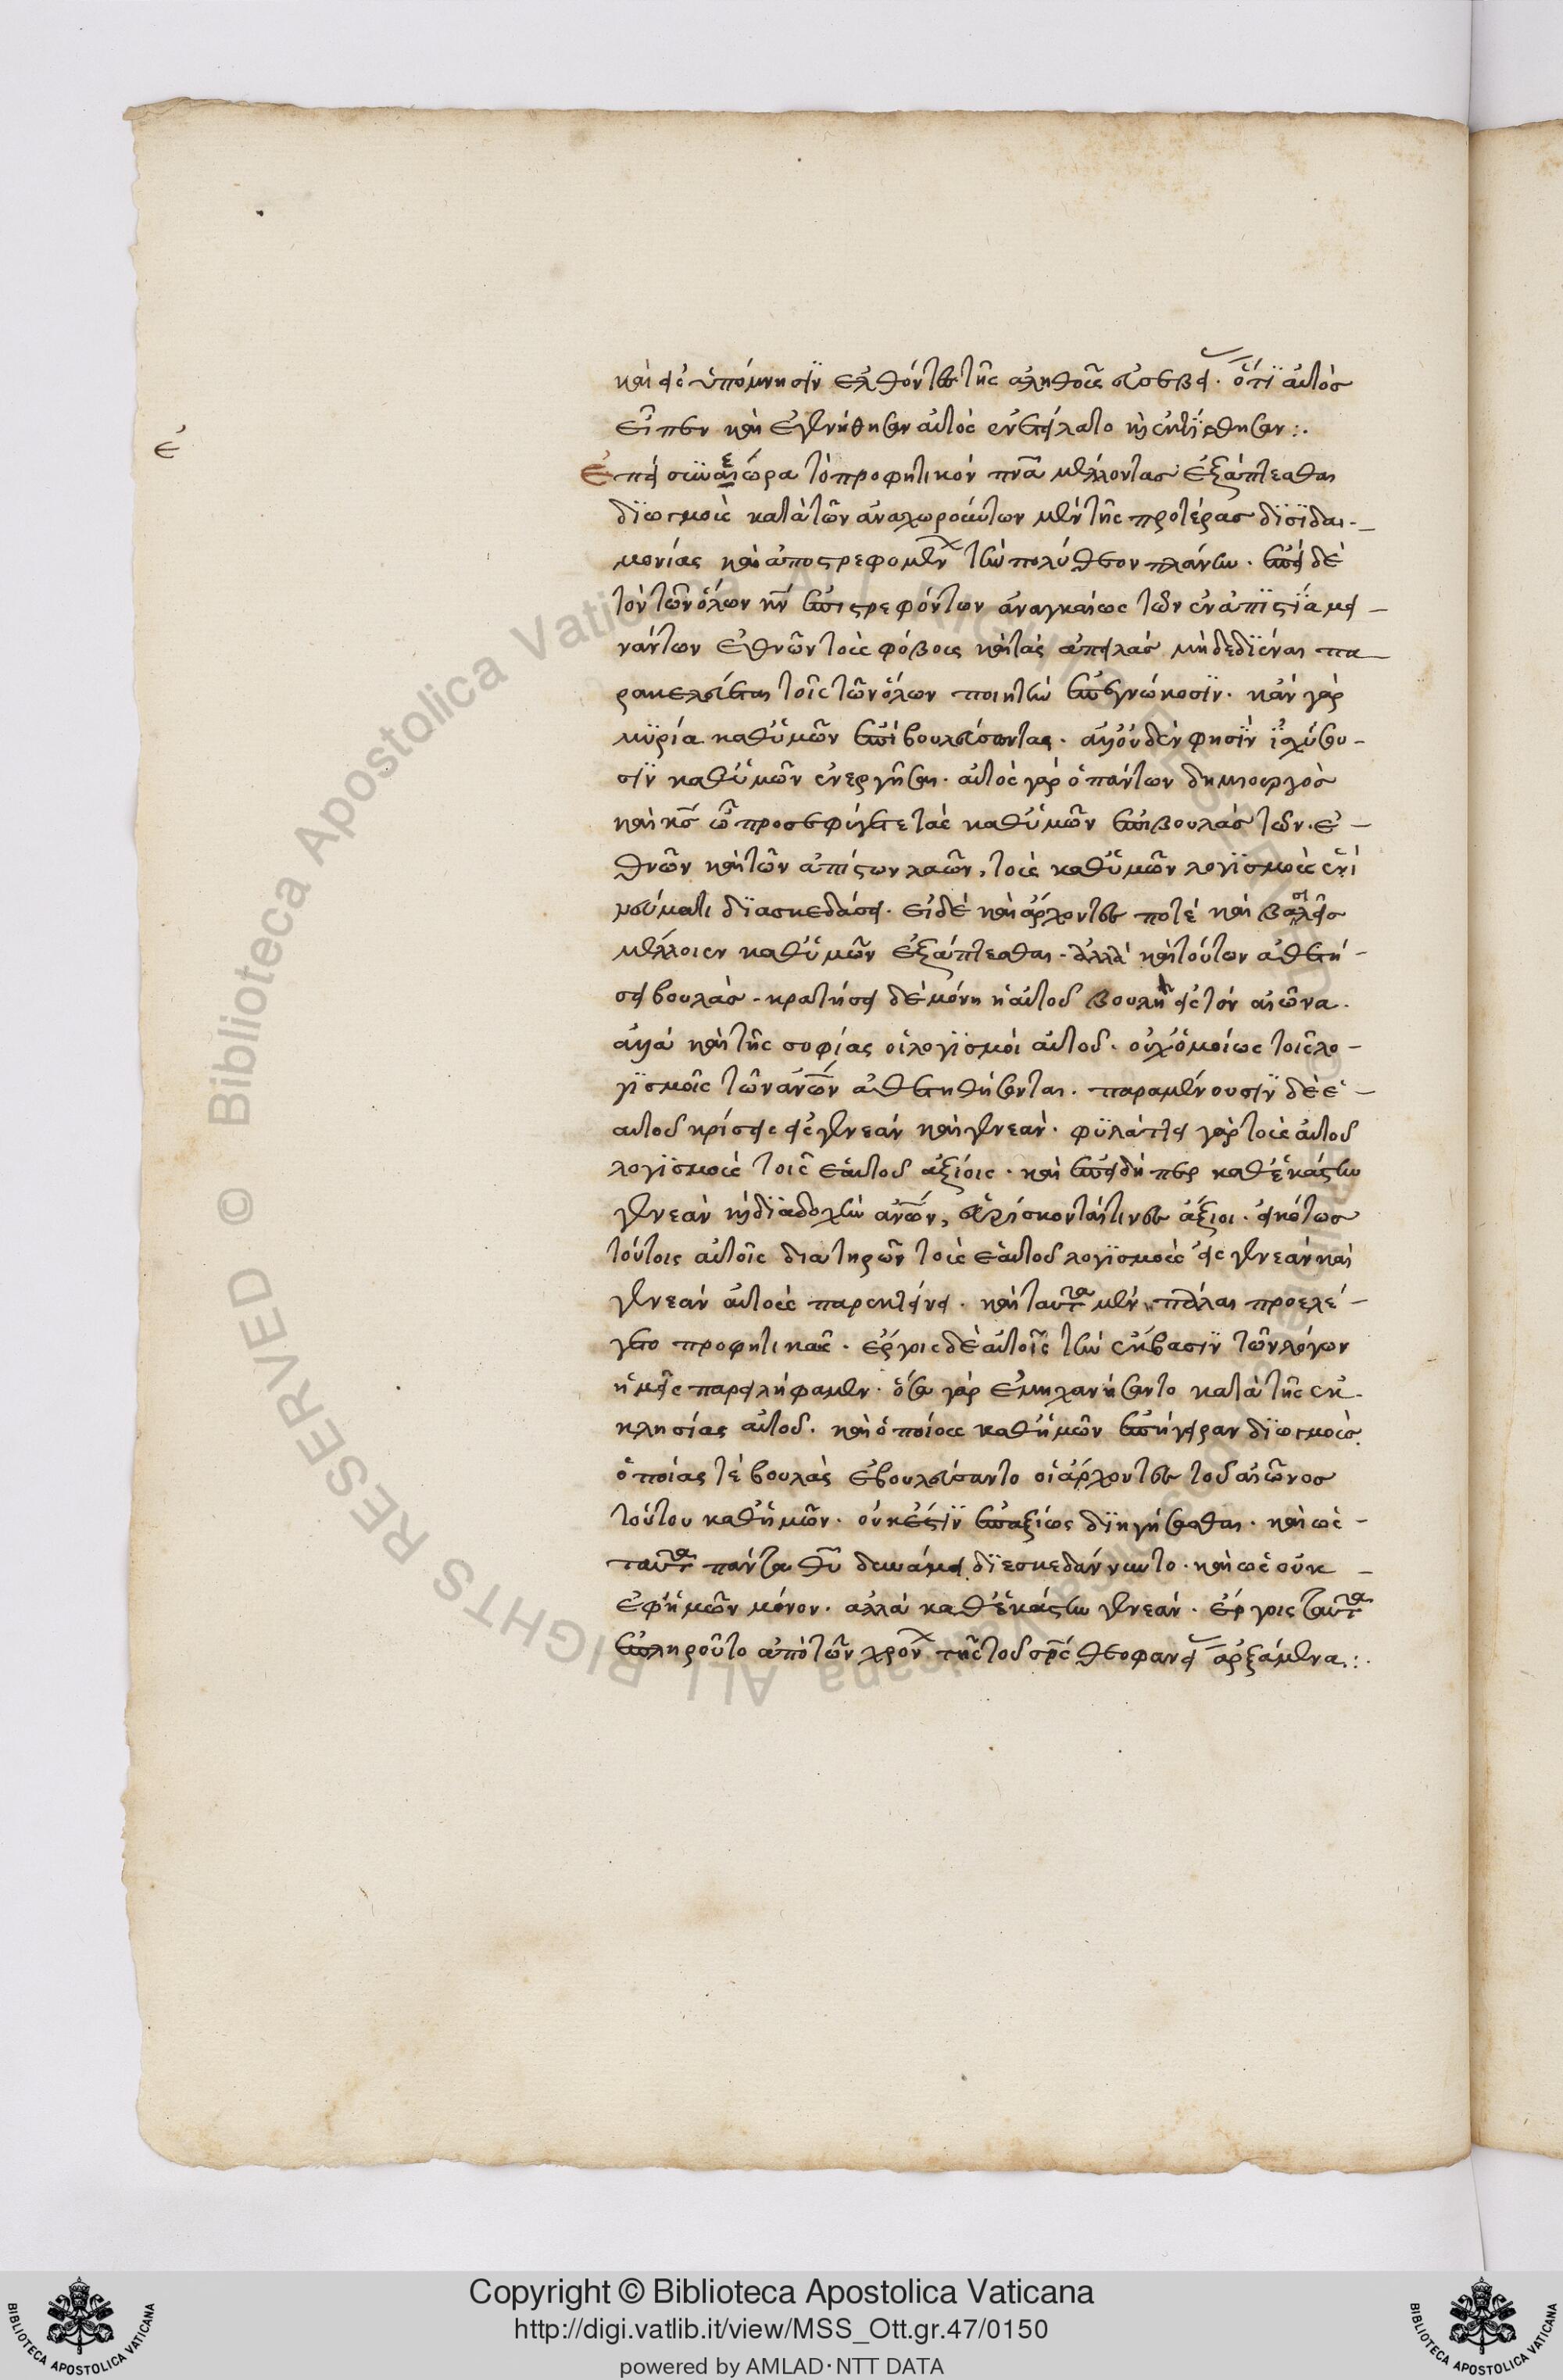 καὶ εἰς ὑπόμνησιν ἐλθόντες τῆς ἀληθοῦς εὐσεβεί ὅτι αὐτὸς
εἶπεν καὶ ἐγενήθησαν αὐτὸς ἐνετείλατο καὶ ἐκτίσθησαν :.
ε
Ἐπεὶ συνεώρα τὸ προφητικὸν πνα μέλλοντας ἐξάπτεσθαι
διωγμοὺς κατὰ τῶν ἀναχωρούντων μὲν τῆς προτέρας δισιδαι-
μονίας καὶ ἀποστρεφομεν τὴν πολύθεον πλάνην. ἐπεὶ δὲ
τὸν τῶν ὅλων κν ἐπιστρεφόντων ἀναγκαίως τῶν ἐν ἀπιστία μει-
νάντων ἐθνῶν τοὺς φόβους καὶ τὰς ἀπειλὰς μὴ δεδιέναι πα-
ρακελεύεται τοῖς τῶν ὅλων ποιητὴν ἐπεγνώκοσιν. κἂν γὰρ
μυρία καθ' ὑμῶν ἐπιβουλεύσωνται. ἀλλ' οὐδέν φησιν ἰσχύσου-
σιν καθ' ὑμῶν ἐνεργῆσαι. αὐτὸς γὰρ ὁ πάντων δημιουργὸς
καὶ κς ὢν προσεφύγετε τὰς καθ' ὑμῶν ἐπιβουλὰς τῶν ἐ-
θνῶν καὶ τῶν ἀπίστων λαῶν, τοὺς καθ' ὑμῶν λογισμοὺς ἑνὶ
νεύματι διασκεδάσει. εἰ δὲ καὶ ἄρχοντες ποτὲ καὶ βασιλεῖς
μέλλοιεν καθ' ὑμῶν ἐξάπτεσθαι. ἀλλὰ καὶ τούτων ἀθετή-
σει βουλάς. κρατήσει δὲ μόνη ἡ αὐτοῦ βουλὴ εἰς τὸν αἰῶνα.
ἀλλὰ καὶ τῆς σοφίας οἱ λογισμοὶ αὐτοῦ. οὐχ ὁμοίως τοῖς λο-
γισμοῖς τῶν ανων ἀθετηθήσονται. παραμένουσιν δὲ ἑ-
αυτοῦ κρίσεις εἰς γενεὰν καὶ γενεάν. φυλάττει γὰρ τοὺς αὐτοῦ
λογισμοὺς τοῖς ἑαυτοῦ ἀξίοις. καὶ ἐπειδήπερ καθ' ἑκάστην
γενεὰν καὶ διαδοχὴν ανων, εὑρίσκονταί τινες ἄξιοι. εἰκότως
τούτοις αὐτοῖς διατηρῶν τοὺς ἑαυτοῦ λογισμοὺς εἰς γενεὰν καὶ
γενεὰν αὐτοὺς παρεκτείνει. καὶ ταῦτα μὲν πάλαι προελέ-
γετο προφητικῶς. ἔργοις δὲ αὐτοῖς τὴν ἔκβασιν τῶν λόγων
ἡμεῖς παρειλήφαμεν. ὅσα γὰρ ἐμηχανήσαντο κατὰ τῆς ἐκ-
κλησίας αὐτοῦ. καὶ ὁποίους καθ' ἡμῶν ἐπήγειραν διωγμούς.
ὁποίας τὲ βουλὰς ἐβουλεύσαντο οἱ ἄρχοντες τοῦ αἰῶνος
τούτου καθ' ἡμῶν. οὐκ ἔστιν ἐπαξίως διηγήσασθαι. καὶ ὡς
ταῦτα πάντα θυ δυνάμει διεσκεδάννυντο. καὶ ὡς οὐκ
ἐφ' ἡμῶν μόνον. ἀλλὰ καθ' ἑκάστην γενεάν. ἔργοις ταῦτα
ἐπληροῦτο ἀπὸ τῶν χρον τῆς τοῦ σρς θεοφανεί ἀρξάμενα :.
Copyright © Biblioteca Apostolica Vaticana
http://digi.vatlib.it/view/MSS_Ott.gr.47/0150
powered by AMLAD·NTT DATA
BIBLIOTECA APOSTOLICA VATICANA
BIBLIOTECA APOSTOLICA VATICANA